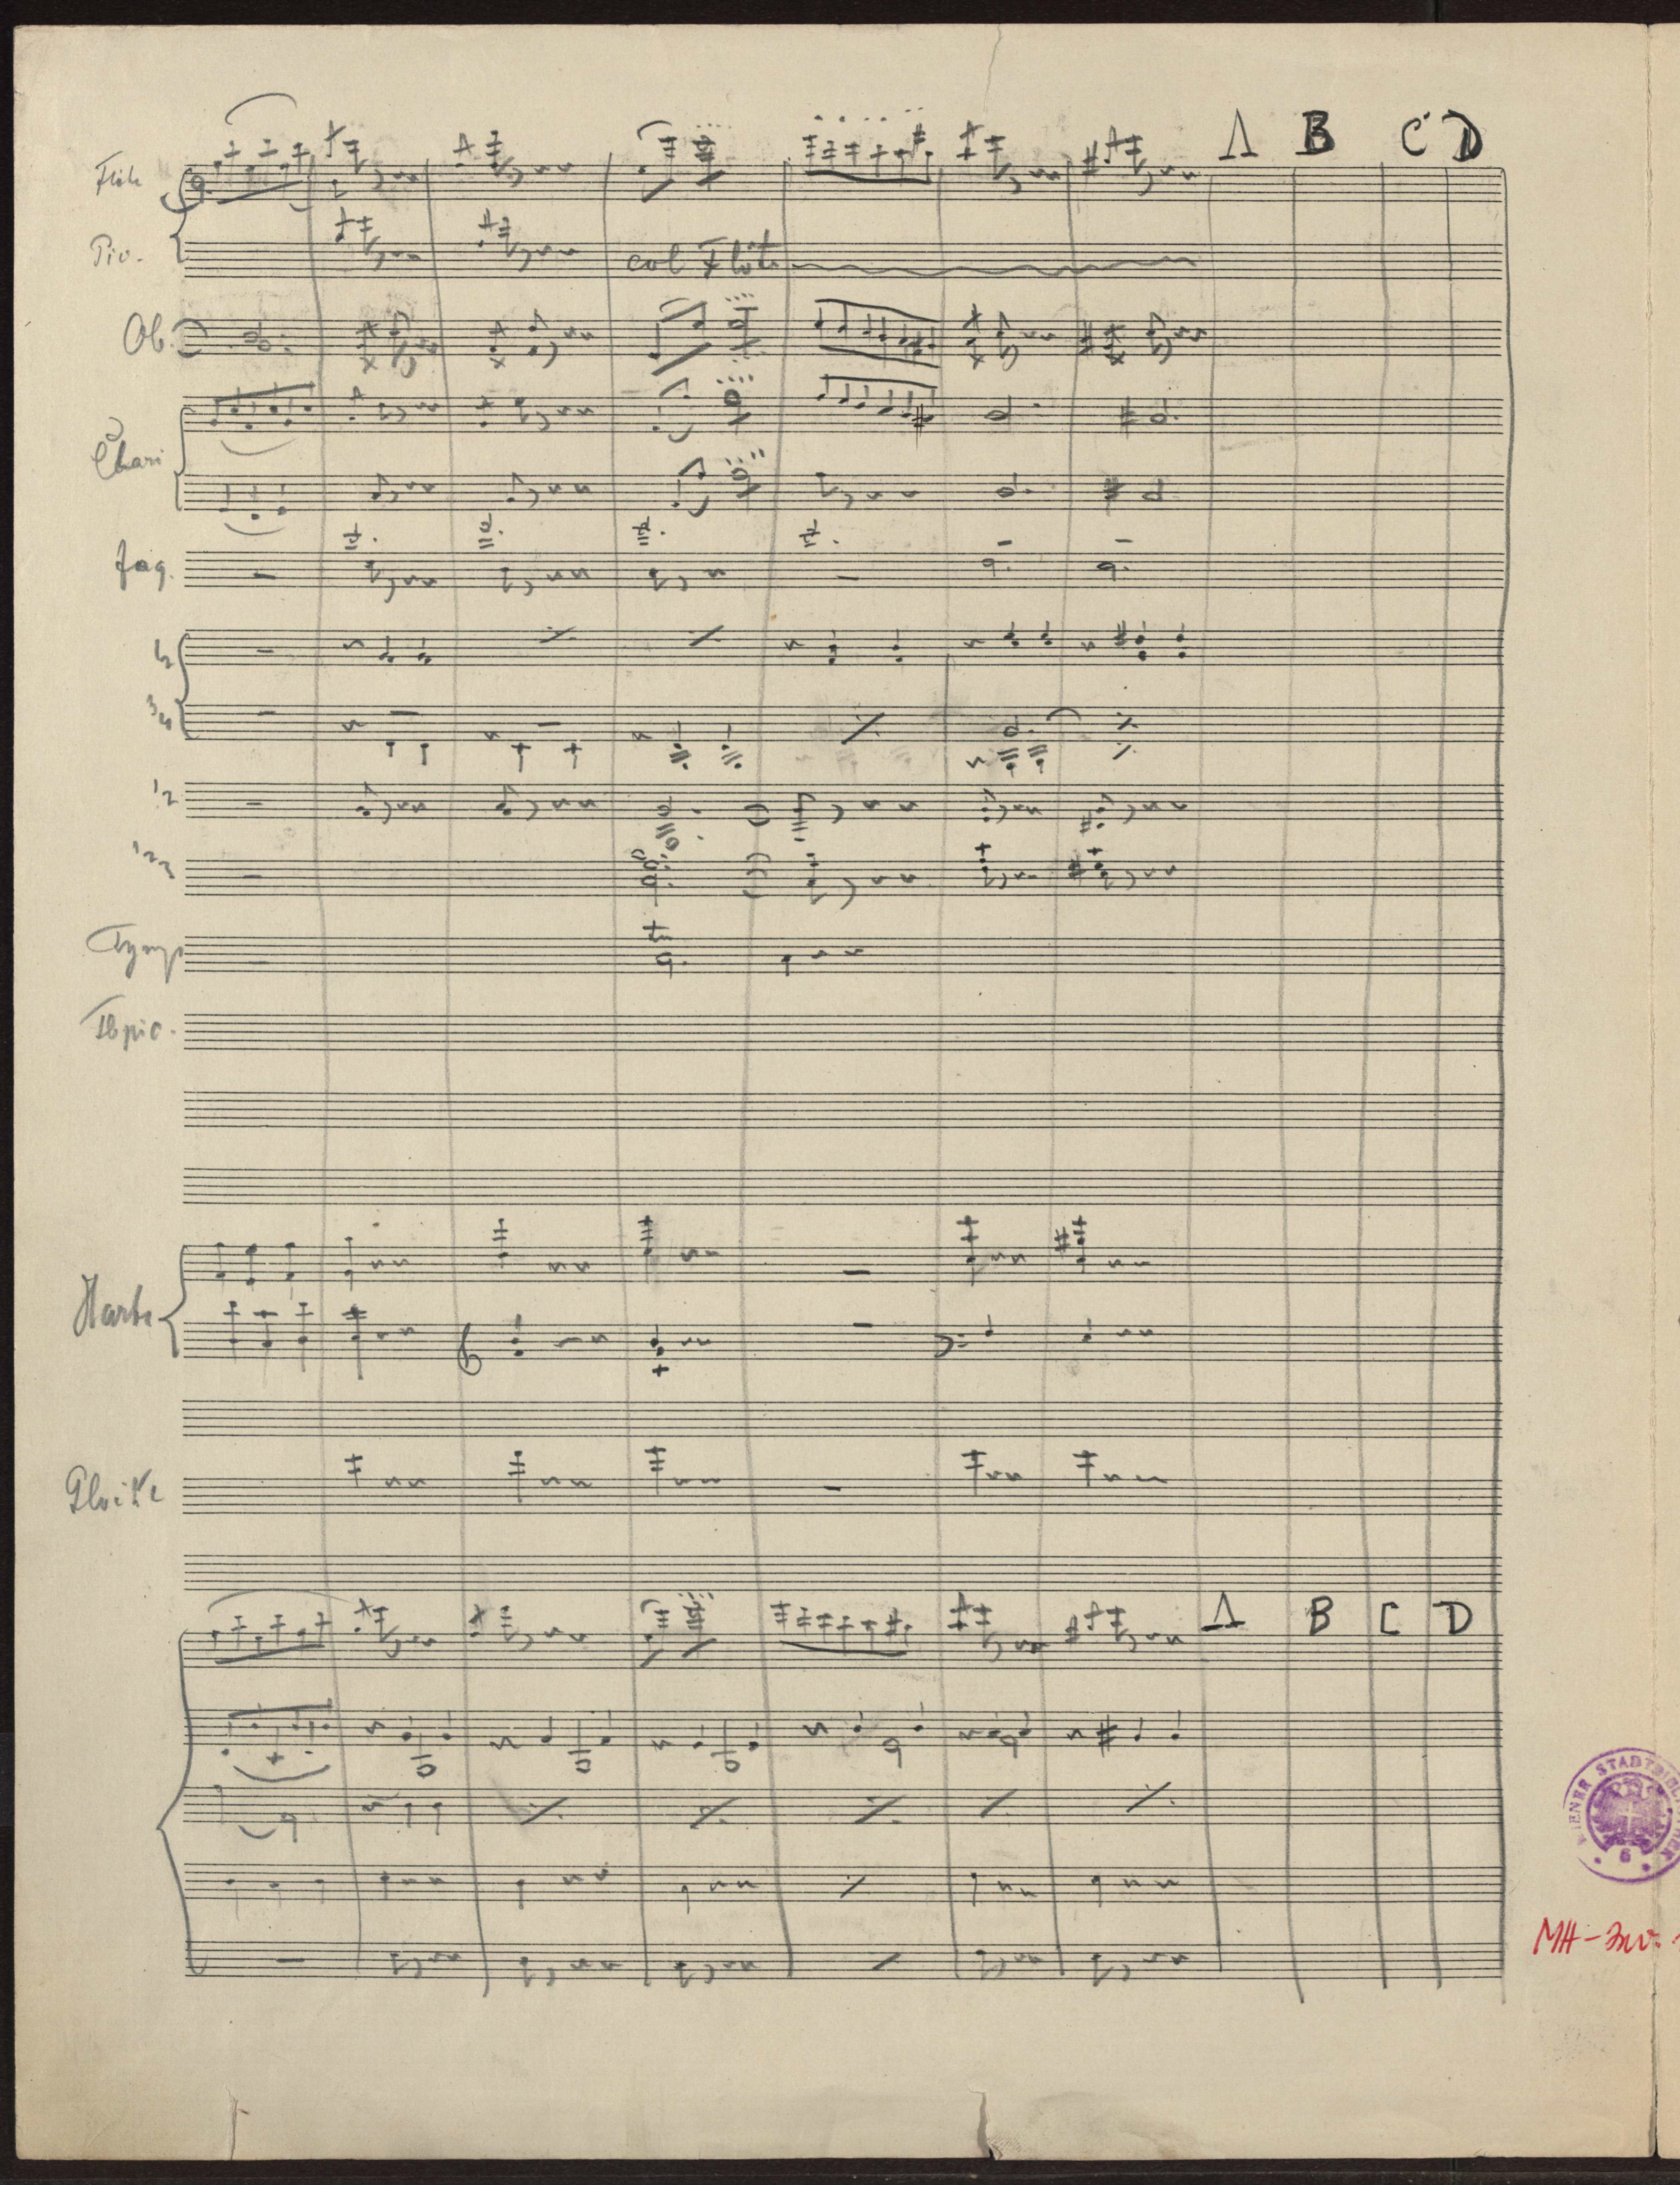 A B C D
Flöte
Picc.
col Flöte
Ob.
Clari
fag.
1/2
3/4
1 2
1 2 3
Tymp
tr
Harfe
Glocke
A B C D
WIENER STADTBIBLIOTHEK
6
MH-Inv.